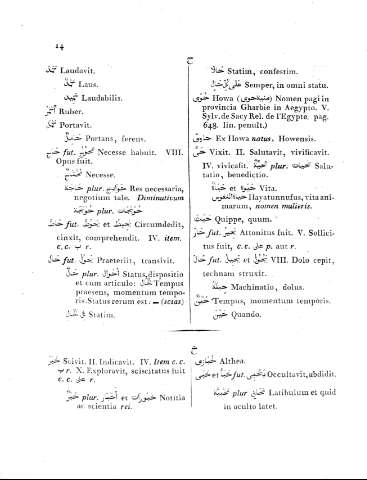 14
ح
حمد Laudavit.
حمد Laus.
حميد Laudabilis.
احمر Ruber.
حمل Portavit.
حامل Portans, ferens.
fut. Necesse habuit. VIII.
Opus fuit.
Necesse.
حاجة plur. حوايج Res necessaria,
negotium tale. Diminutivum
plur.
حاط fut. يحوط et يحيط Circumdedit,
cinxit, comprehendit. IV. item.
c. c. ب r.
حال fut. يحول Praeteriit, transivit.
حال plur. احوال Status, dispositio
et cum articulo: الحال Tempus
praesens, momentum tempo-
ris. Status rerum est: = (setas)
في الحال Statim.
حالا Statim, confestim.
على كل حال Semper, in omni statu.
حوى Howa (منية حوى) Nomen pagi in
provincia Gharbie in Aegypto. V.
Sylv. de Sacy Rel. de l'Egypte. pag.
648. lin. penult.)
حاوى Ex Howa natus, Howensis.
حيى Vixit. II. Salutavit, vivificavit.
IV. vivificavit. تحية plur. تحيات Salu-
tatio, benedictio.
حياة et حيوة Vita.
حياة النفوس Hayatunnufus, vita ani-
marum, nomen mulieris.
حيث Quippe, quum.
حار fut. يحير Attonitus fuit. V. Sollici-
tus fuit, c. c. على p. aut r.
حال fut. يحيل et يحول VIII. Dolo cepit,
technam struxit.
حيلة Machinatio, dolus.
حين Tempus, momentum temporis.
حين Quando.
خ
خبر Scivit. II. Indicavit. IV. Item c. c.
ب r. X. Exploravit, sciscitatus fuit
c. c. على r.
خبر plur. اخبار et خبورات Notitia
ac scientia rei.
خبازى Althea.
خبا et خبى fut. يخبى Occultavit, abdidit.
plur. مخابى Latibulum et quid
in oculto latet.